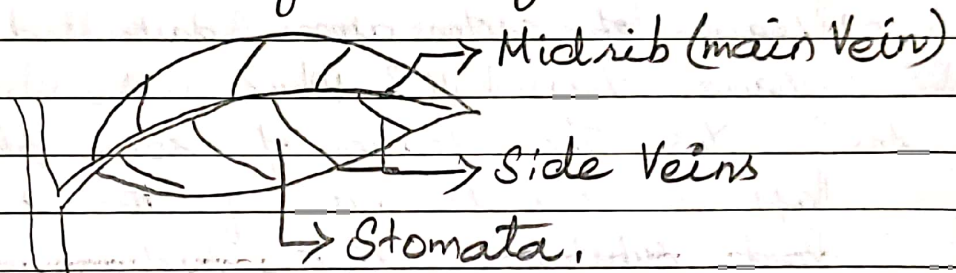 Midrib (main Vein)
Side Veins
Stomata.